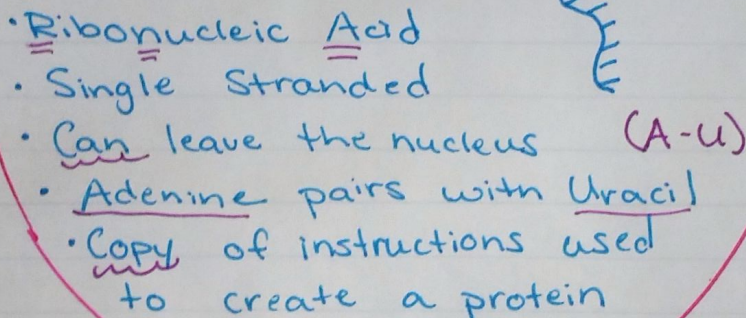 • Ribonucleic Acid
• Single Stranded
• Can leave the nucleus (A-U)
• Adenine pairs with Uracil
• Copy of instructions used
to create a protein